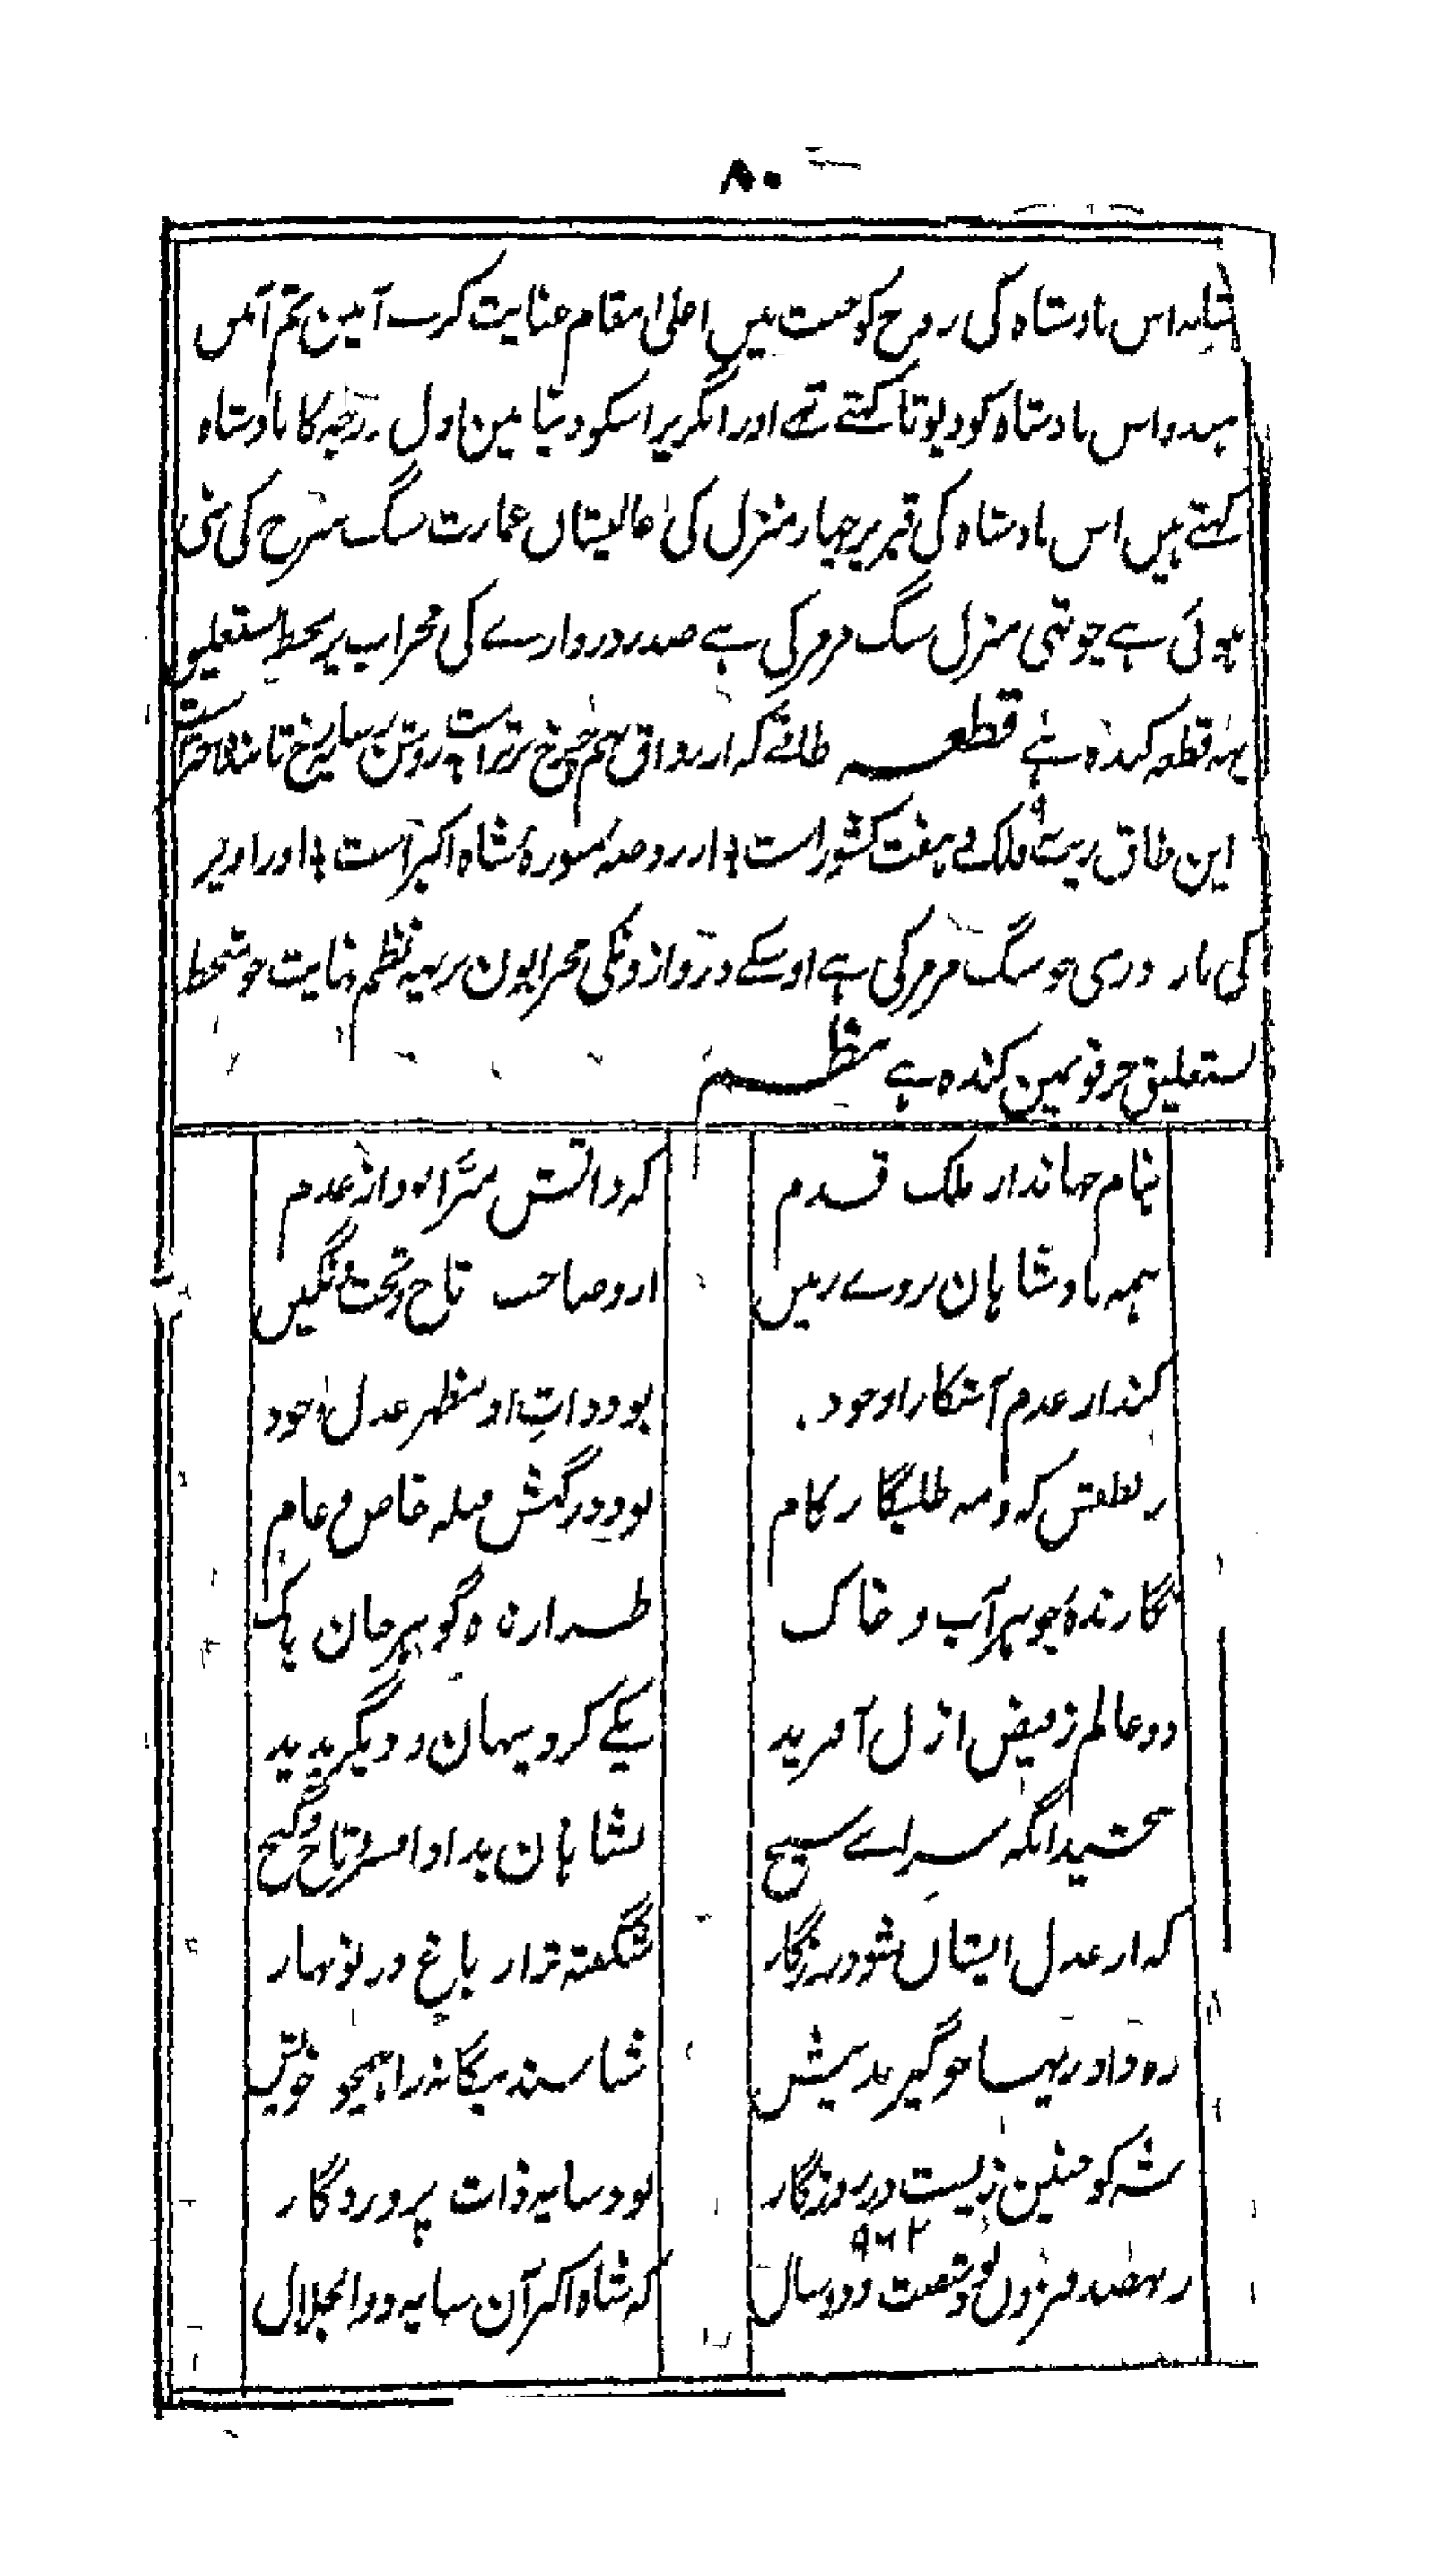 ۸۰
شانہ اس بادشاہ کی روح کو جنت میں اعلیٰ مقام عنایت کرے آمین ثم آمین
ہندو اس بادشاہ کو دیوتا کہتے تھے اور انگریز اسکو دنیا مین اول درجہ کا بادشاہ
کہتے ہیں اس بادشاہ کی قبر پر چہار منزل کی عالیشان عمارت سنگ سرخ کی بنی
ہوئی ہے چوتھی منزل سنگ مرمر کی ہے صدر دروازے کی محراب پر بخط نستعلیق
یہہ قطعہ کندہ ہے قطعہ طاقے کہ از رواق نہم چرخ برتر است روشن بسایہ رخ تابندہ اختر است
این طاق زینت فلک و ہفت کشور است از روضہ منورہ شاہ اکبر است اور اوپر
کی بارہ دری جو سنگ مرمر کی ہے اوسکے دروازونکی محرابون پر یہہ نظم نہایت خوشخط
نستعلیق حرفونمین کندہ ہے نظم
بنام جہاندار ملک قدم	کہ ذاتش مبرّا بود از عدم
ہمہ بادشاہان روے زمیں	ازو صاحب تاج و تخت و نگیں
کند از عدم آشکارا وجود	بود ذاتِ او مظہر عدل و جود
ز لطفش کہ و مہ طلبگار کام	بود درگہش قبلہ خاص و عام
نگارندہٴ جوہر آب و خاک	طرازندہ گوہر جان پاک
دو عالم ز فیض ازل آفرید	یکے کرد پنہان و دیگر پدید
بخشید انگہ سراے سپنج	بشاہان بداد افسر و تاج و گنج
کہ از عدل ایشاں شود روزگار	شگفتہ تر از باغ در نوبہار
رہ داد دینہا چو گیرند پیش	شناسند بیگانہ را ہمچو خویش
شہ کو چنین زیست در روزگار	بود سایہ ذات پروردگار
۹۶۲
ز نہصد فزوں بود و شصت و دو سال	کہ شاہ اکبر آن سایہ ذوالجلال